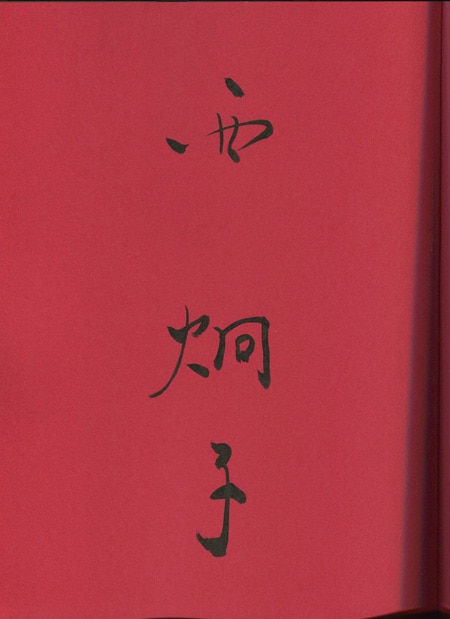 西炯子